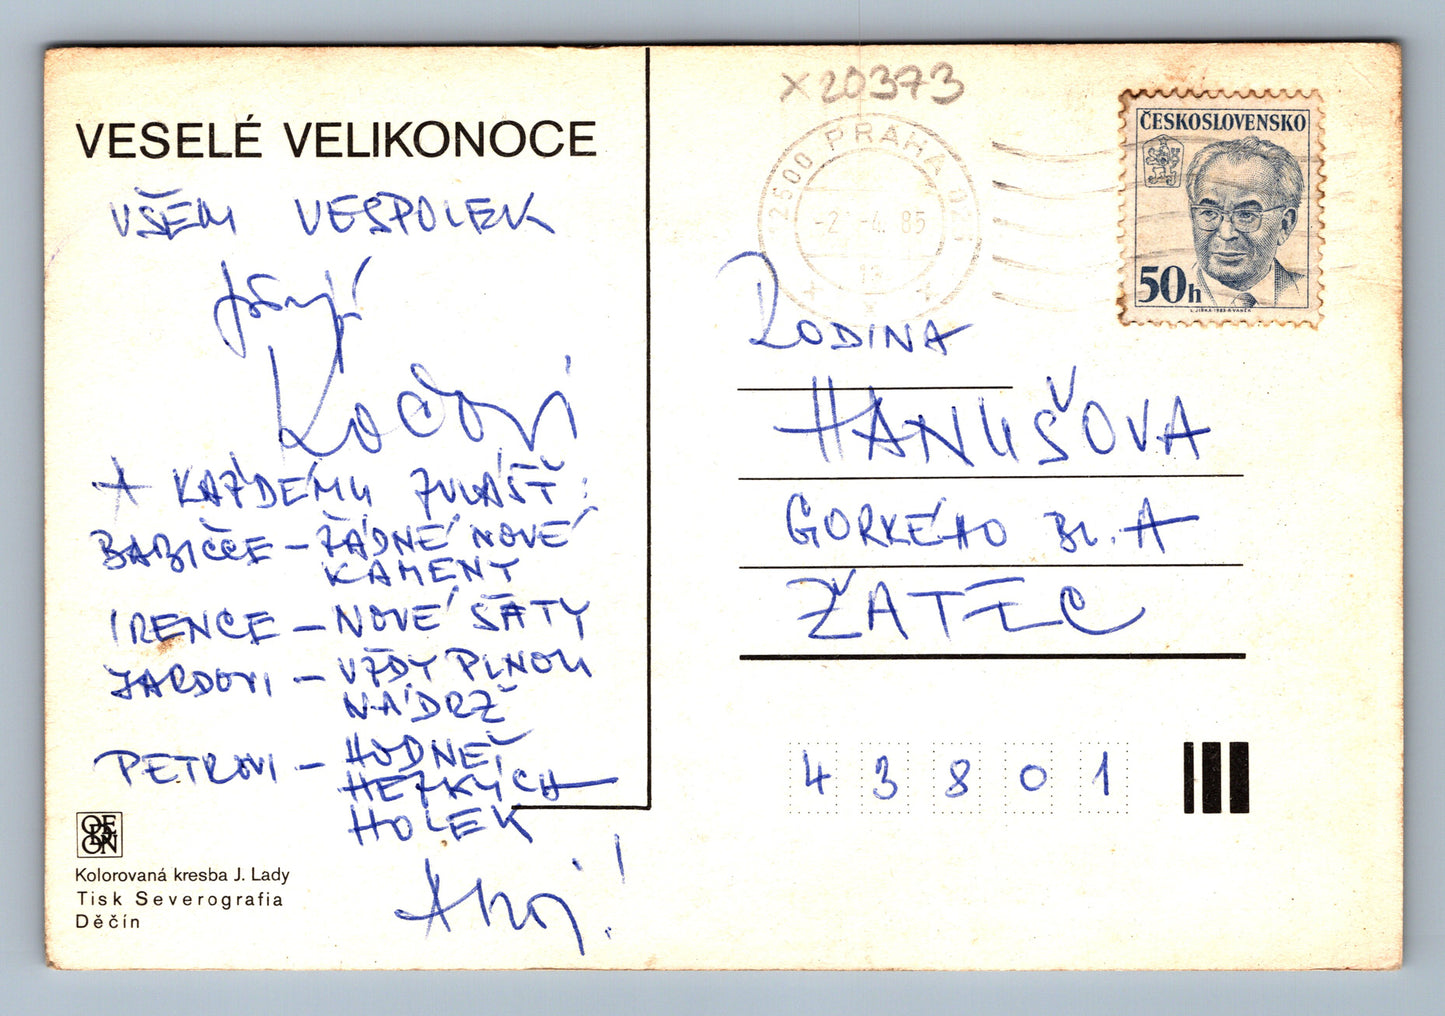 VESELÉ VELIKONOCE
VŠEM VESPOLEK
přejí
Kodovi
A KAŽDÉMU ZVLÁŠŤ:
BABIČCE – ŽÁDNÉ NOVÉ
KAMENY
IRENCE – NOVÉ ŠATY
JARDOVI – VŽDY PLNOU
NÁDRŽ
PETROVI – HODNĚ
HEZKÝCH
HOLEK
Ahoj!
ODEON
Kolorovaná kresba J. Lady
Tisk Severografia
Děčín
X20373
PRAHA
-2.-4. 85
13
ČESKOSLOVENSKO
50h
L.JIRKA-1983-R.VANĚK
RODINA
HANUŠOVA
GORKÉHO BL. A
ŽATEC
43801